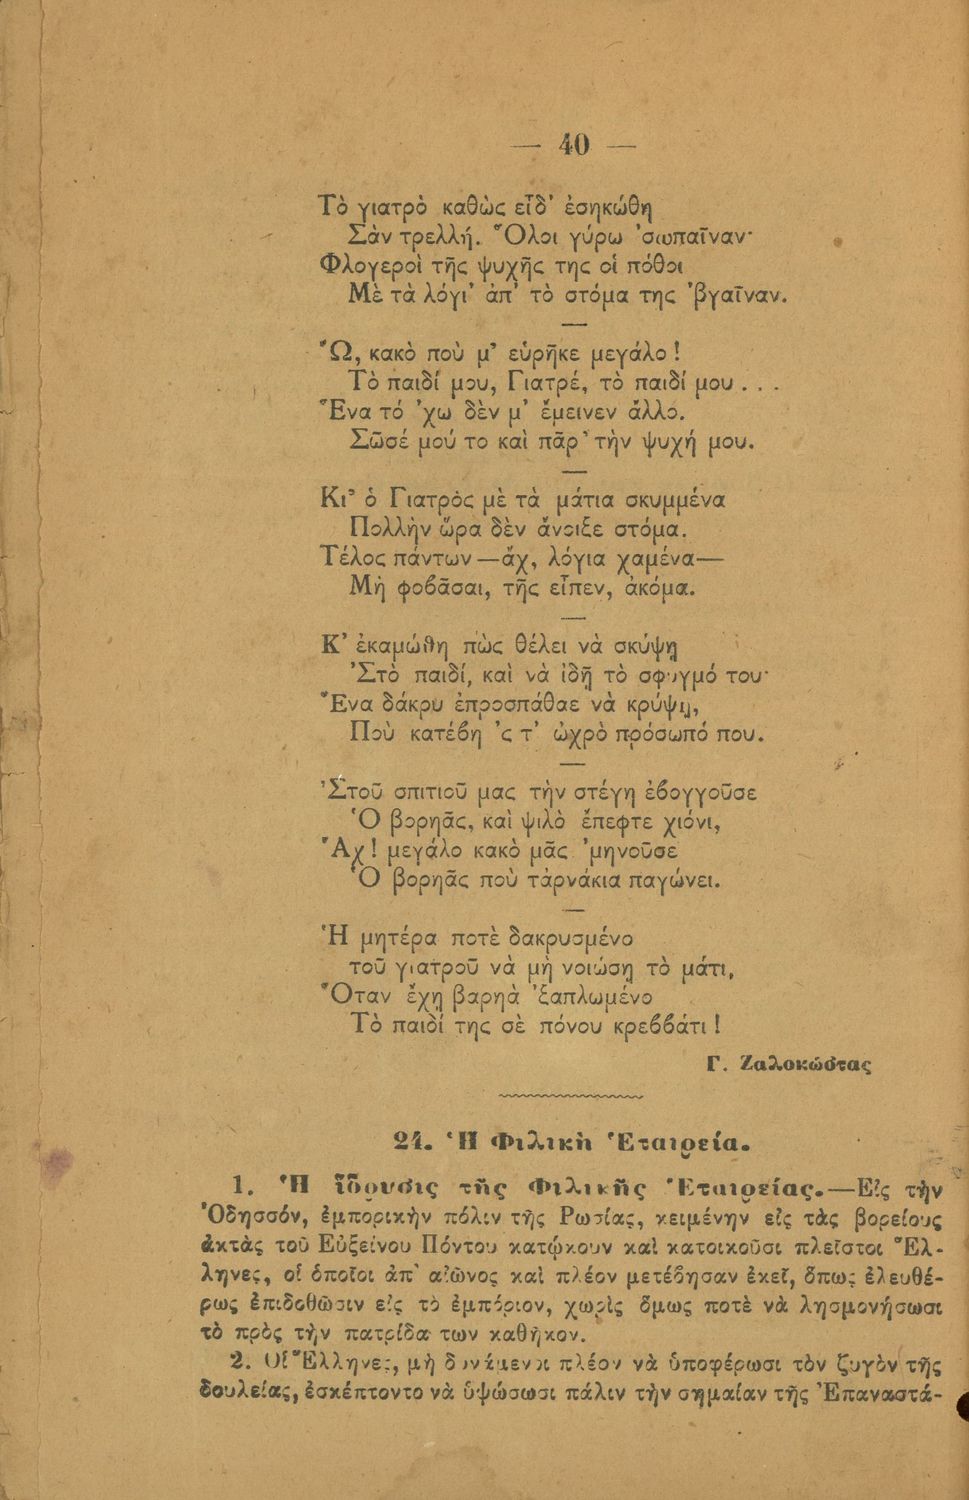 — 40 —
Τὸ γιατρὸ καθὼς εἶδ' ἐσηκώθη
Σὰν τρελλή. Ὅλοι γύρω 'σωπαῖναν·
Φλογεροὶ τῆς ψυχῆς της οἱ πόθοι
Μὲ τὰ λόγι' ἀπ' τὸ στόμα της 'βγαῖναν.
Ὤ, κακὸ ποὺ μ' εὑρῆκε μεγάλο!
Τὸ παιδί μου, Γιατρέ, τὸ παιδί μου . . .
Ἕνα τό 'χω δὲν μ' ἔμεινεν ἄλλο.
Σῶσέ μού το καὶ πᾶρ' τὴν ψυχή μου.
Κι' ὁ Γιατρὸς μὲ τὰ μάτια σκυμμένα
Πολλὴν ὥρα δὲν ἄνοιξε στόμα.
Τέλος πάντων—ἄχ, λόγια χαμένα—
Μὴ φοβᾶσαι, τῆς εἶπεν, ἀκόμα.
Κ' ἐκαμώθη πὼς θέλει νὰ σκύψῃ
'Στὸ παιδί, καὶ νὰ ἰδῇ τὸ σφυγμό του·
Ἕνα δάκρυ ἐπροσπάθαε νὰ κρύψῃ,
Ποὺ κατέβη 'ς τ' ὠχρὸ πρόσωπό που.
'Στοῦ σπιτιοῦ μας τὴν στέγη ἐβογγοῦσε
Ὁ βορηᾶς, καὶ ψιλὸ ἔπεφτε χιόνι,
Ἄχ! μεγάλο κακὸ μᾶς 'μηνοῦσε
Ὁ βορηᾶς ποὺ τἀρνάκια παγώνει.
Ἡ μητέρα ποτὲ δακρυσμένο
τοῦ γιατροῦ νὰ μὴ νοιώσῃ τὸ μάτι,
Ὅταν ἔχῃ βαρηὰ 'ξαπλωμένο
Τὸ παιδί της σὲ πόνου κρεββάτι!
Γ. Ζαλοκώστας
24. Ἡ Φιλικὴ Ἑταιρεία.
1. Ἡ ἵδρυσις τῆς Φιλικῆς Ἑταιρείας.—Εἰς τὴν
Ὀδησσόν, ἐμπορικὴν πόλιν τῆς Ρωσίας, κειμένην εἰς τὰς βορείους
ἀκτὰς τοῦ Εὐξείνου Πόντου κατῴκουν καὶ κατοικοῦσι πλεῖστοι Ἕλ-
ληνες, οἱ ὁποῖοι ἀπ' αἰῶνος καὶ πλέον μετέβησαν ἐκεῖ, ὅπως ἐλευθέ-
ρως ἐπιδοθῶσιν εἰς τὸ ἐμπόριον, χωρὶς ὅμως ποτὲ νὰ λησμονήσωσι
τὸ πρὸς τὴν πατρίδα των καθῆκον.
2. Οἱ Ἕλληνες, μὴ δυνάμενοι πλέον νὰ ὑποφέρωσι τὸν ζυγὸν τῆς
δουλείας, ἐσκέπτοντο νὰ ὑψώσωσι πάλιν τὴν σημαίαν τῆς Ἐπαναστά-